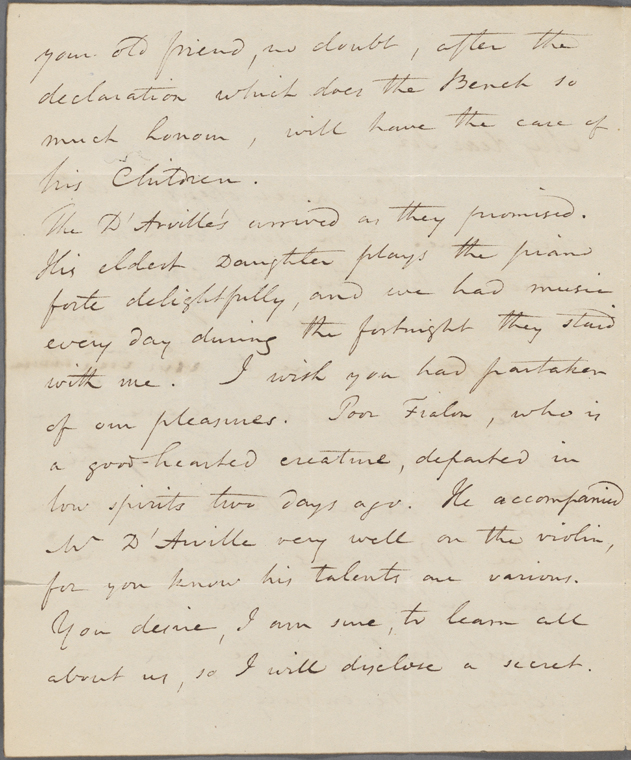 your old friend, no doubt, after the
declaration which does the Bench so
much honour, will have the care of
his Children.
The D'Arville's arrived as they promised.
His eldest Daughter plays the piano
forte delightfully, and we had music
every day during the fortnight they staid
with me. I wish you had partaken
of our pleasures. Poor Fialon, who is
a good-hearted creature, departed in
low spirits two days ago. He accompanied
Mr D'Arville very well on the violin,
for you know his talents are various.
You desire, I am sure, to learn all
about us, so I will disclose a secret.